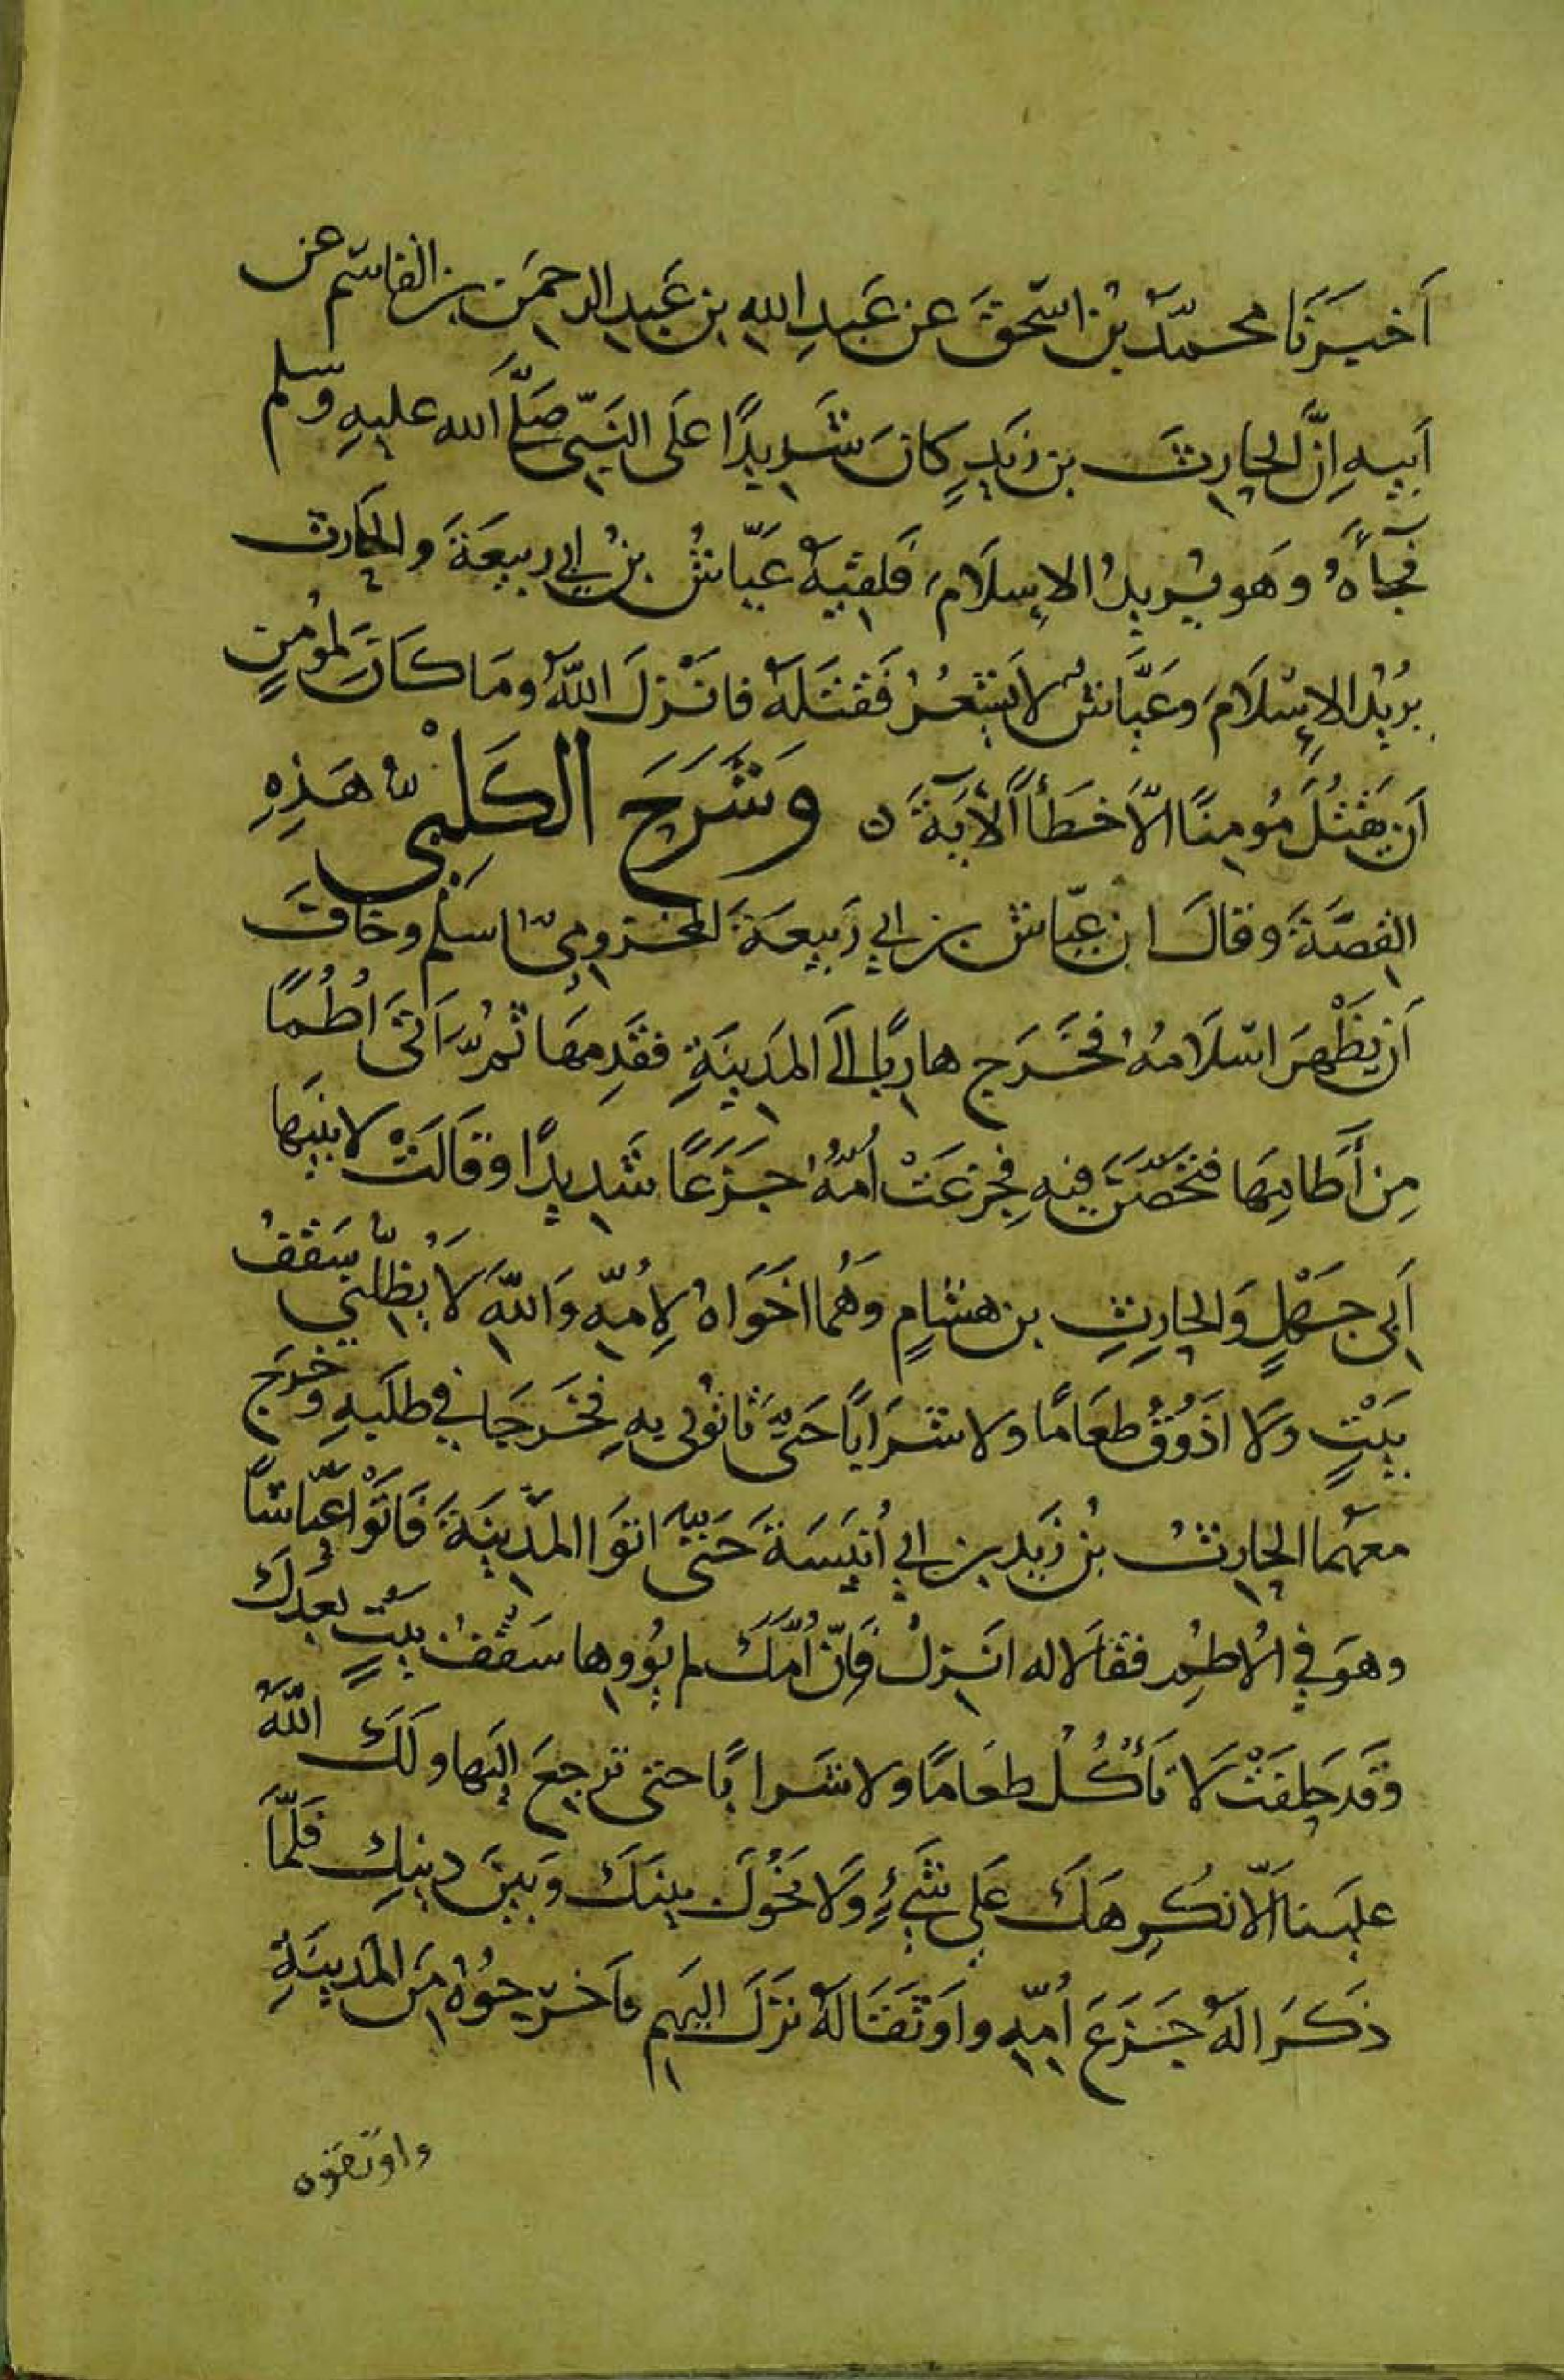 اَخبَرَنَا محمدٌ بْنُ اسْحٰقَ عن عَبدِ اللهِ بنِ عَبدِ الرحمَن بن القاسِم عن
اَبيهِ اِنَّ الحارِثَ بن زيَدٍ كانَ شَدِيدًا عَلَى النَبيّ صَلَّى الله عليهِ وسلم
فجَاۤءَهُ وَهو يُريدُ الاِسلَامَ فَلَقيَهُ عَيّاشُ بنُ ابي رَبيعَةَ والحَارث
يرُيدُ الاِسْلَامَ وعَيَّاشُ لا يَشْعُرُ فَقَتَلَهُ فانْزلَ اللّهُ ومَا كَانَ لِمُؤمِنٍ
اَن يَقْتُلَ مُومِنًا الّا خطَأً الْآيَةَ ه وَشَرَحَ الكَلْبِيُّ هَذِهِ
القِصَّةَ وقالَ ان عيّاش بن ابي رَبيعَةَ المخزوميّ اَسلَم وخافَ
اَن يَظْهرَ اسْلَامهُ فخَرَج هارِبًا الَى المدَينَةِ فقَدِمهَا ثمُّ اَتَى اُطُمًا
مِن أَطَامِهَا فتَحَصَّنَ فيهِ فجِزعَتْ اُمّهُ جَزَعًا شَديدًا وقَالَتْ لابنَيها
اَبى جَهْلٍ وَالحارِثِ بن هشامٍ وَهُما اخَوَاهُ لِاُمّهِ وَاللّهِ لَا يُظِلنيّ سَقفُ
بيَتٍ وَلا اذَوُقُ طعَامًا ولا شَرَابًا حَتّى تَاتوُني بهِ فخَرَجَا في طلَبهِ وخرَج
معهُما الحارثُ بنُ زَيدِ بن ابي اُنيَسَةَ حَتّى اتَوَا المدَينَةَ فَاتَوْا عَيّاشًا
وهوَ في الُاطُم فقالَا له انزِلْ فَاِنّ اُمّكَ لم يُووِها سَقْفُ بيَتٍ بعَدكَ
وقَد حَلفَتْ لَا تَأْكُلُ طعَامًا ولا شَرابًا حتى ترجعَ اِليَها ولَكَ اللّهُ
علَينا اَلّا نكُرِهَكَ عَلى شَيءٍ وَلَا نحَوُلَ بينَكَ وبَينَ دينِكَ فلَمّا
ذكَرَا لهُ جَزَعَ اُمّهِ واَوثَقَا لهُ نزَلَ اليَهِم فاَخرَجوُهُ مِنَ المَدينَةِ
واوثقوه